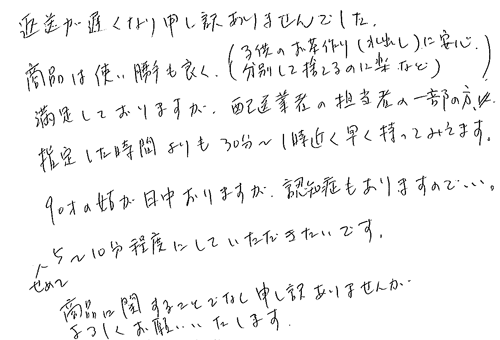 返送が遅くなり申し訳ありませんでした。
商品は使い勝手も良く、(子供のお弁作り(  出し)に安心。
分別して捨てるのに楽など)
満足しておりますが、配送業者の担当者の一部の方が、
指定した時間よりも30分～1時近く早く持ってみえます。
90才の母が日中おりますが、認知症もありますので…。
せめて
5～10分程度にしていただきたいです。
商品に関することでなし申し訳ありませんが
よろしくお願いいたします。